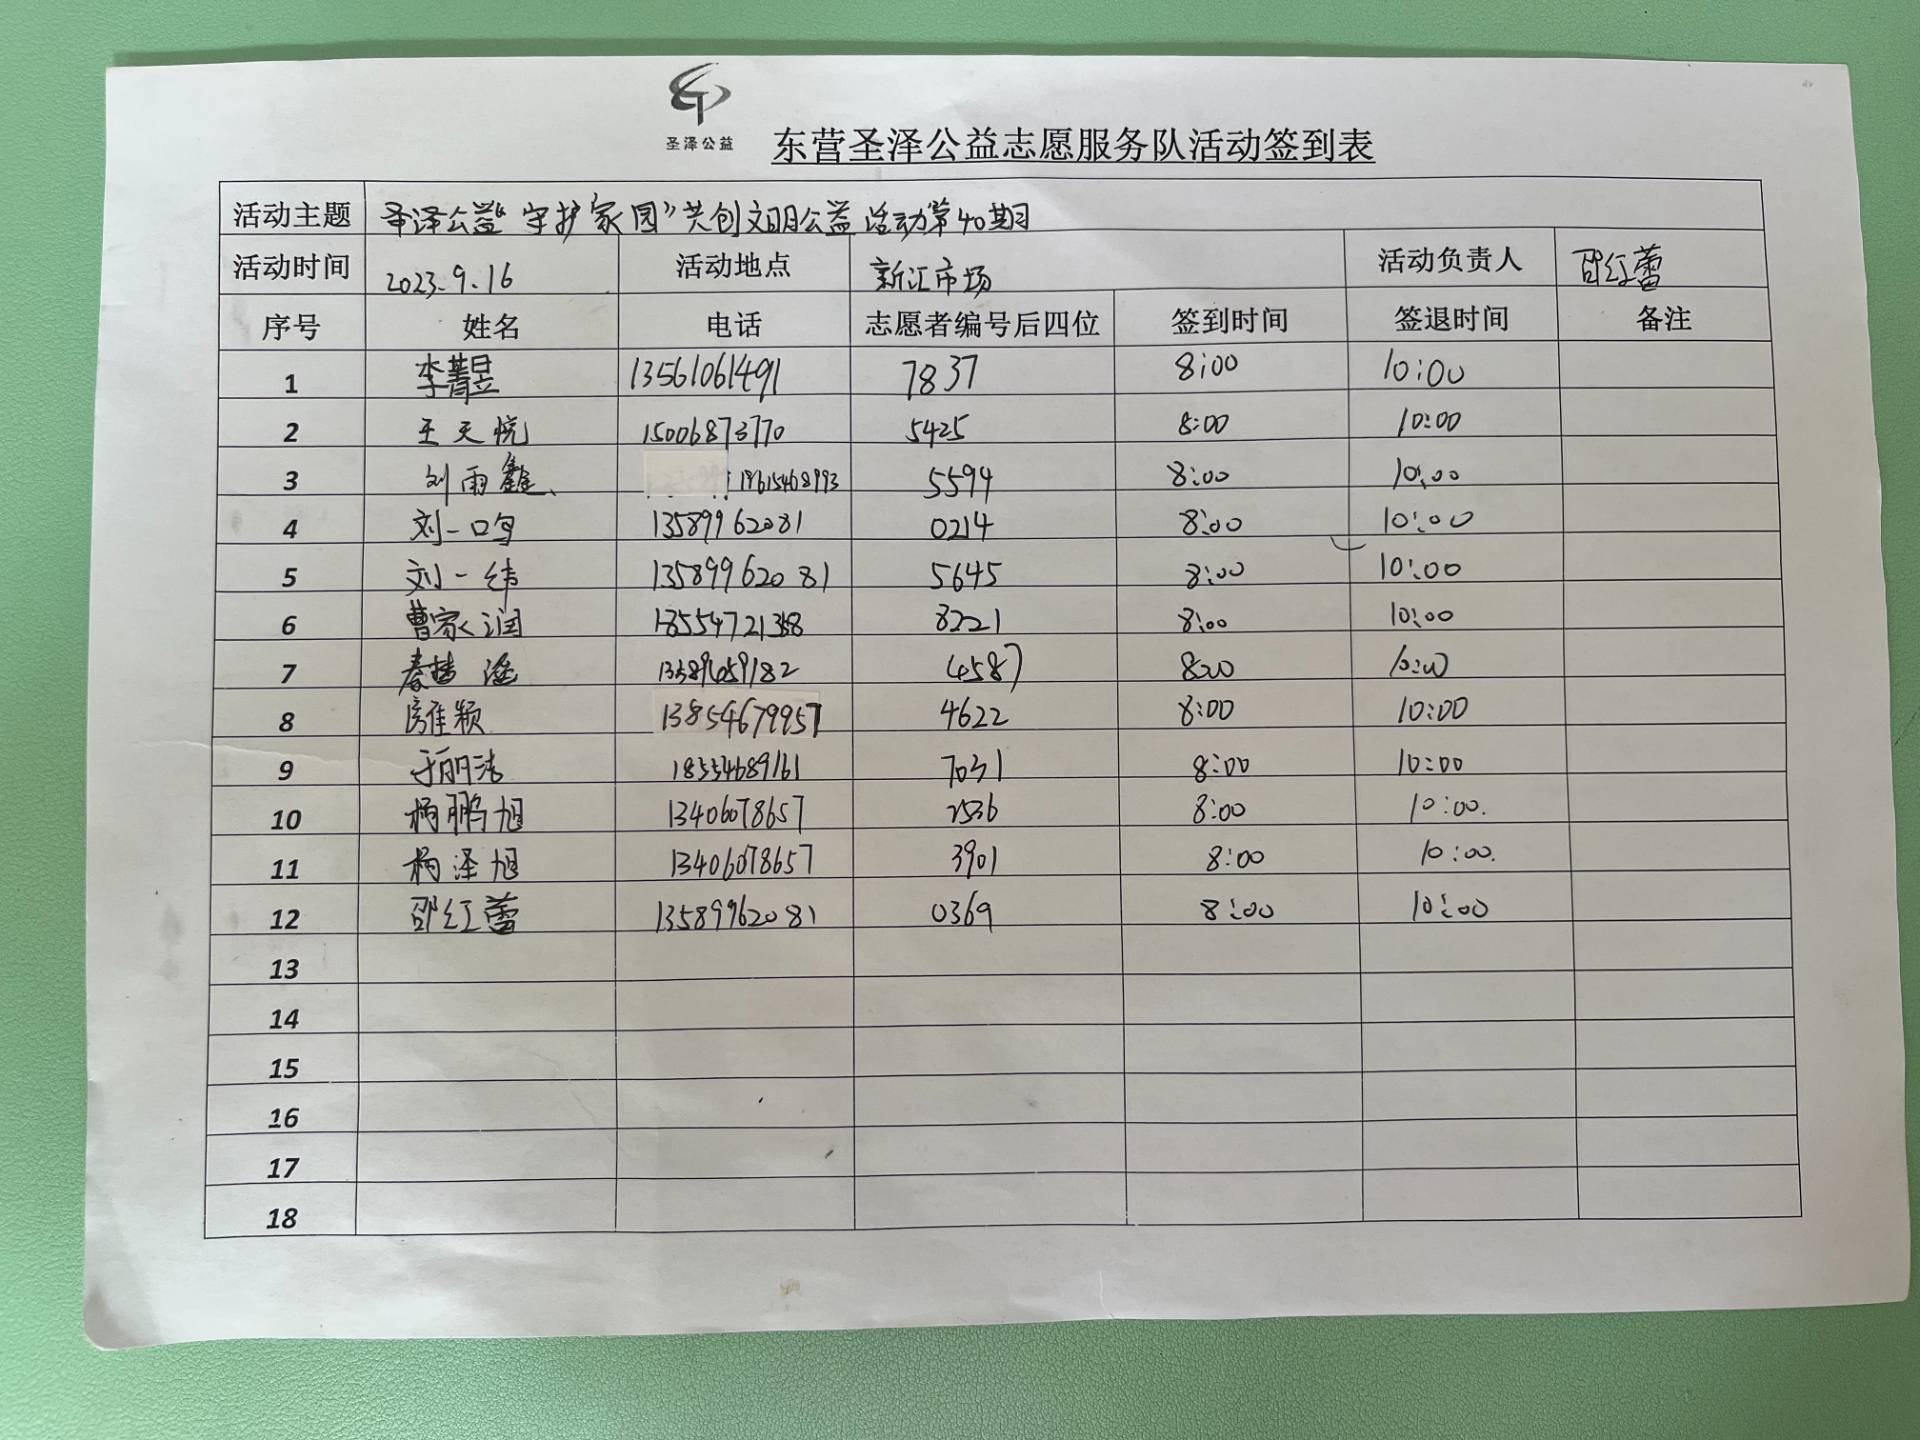 圣泽公益
东营圣泽公益志愿服务队活动签到表
活动主题 圣泽公益"守护家园"共创文明公益活动第40期
活动时间 2023.9.16 活动地点 新汇市场 活动负责人 邵红蕾
序号 姓名 电话 志愿者编号后四位 签到时间 签退时间 备注
1 李菁昱 13561061491 7837 8:00 10:00
2 王天悦 15006873770 5425 8:00 10:00
3 刘雨鑫 19615468993 5594 8:00 10:00
4 刘一鸣 13589962081 0214 8:00 10:00
5 刘一纬 13589962081 5645 8:00 10:00
6 曹家润 18554721358 8221 8:00 10:00
7 4587 8:00 10:00
8 颖 13854679957 4622 8:00 10:00
9 于丽洁 18554689161 7031 8:00 10:00
10 杨鹏旭 13406078657 2536 8:00 10:00.
11 杨泽旭 13406078657 3901 8:00 10:00.
12 邵红蕾 13589962081 0369 8:00 10:00
13
14
15
16
17
18